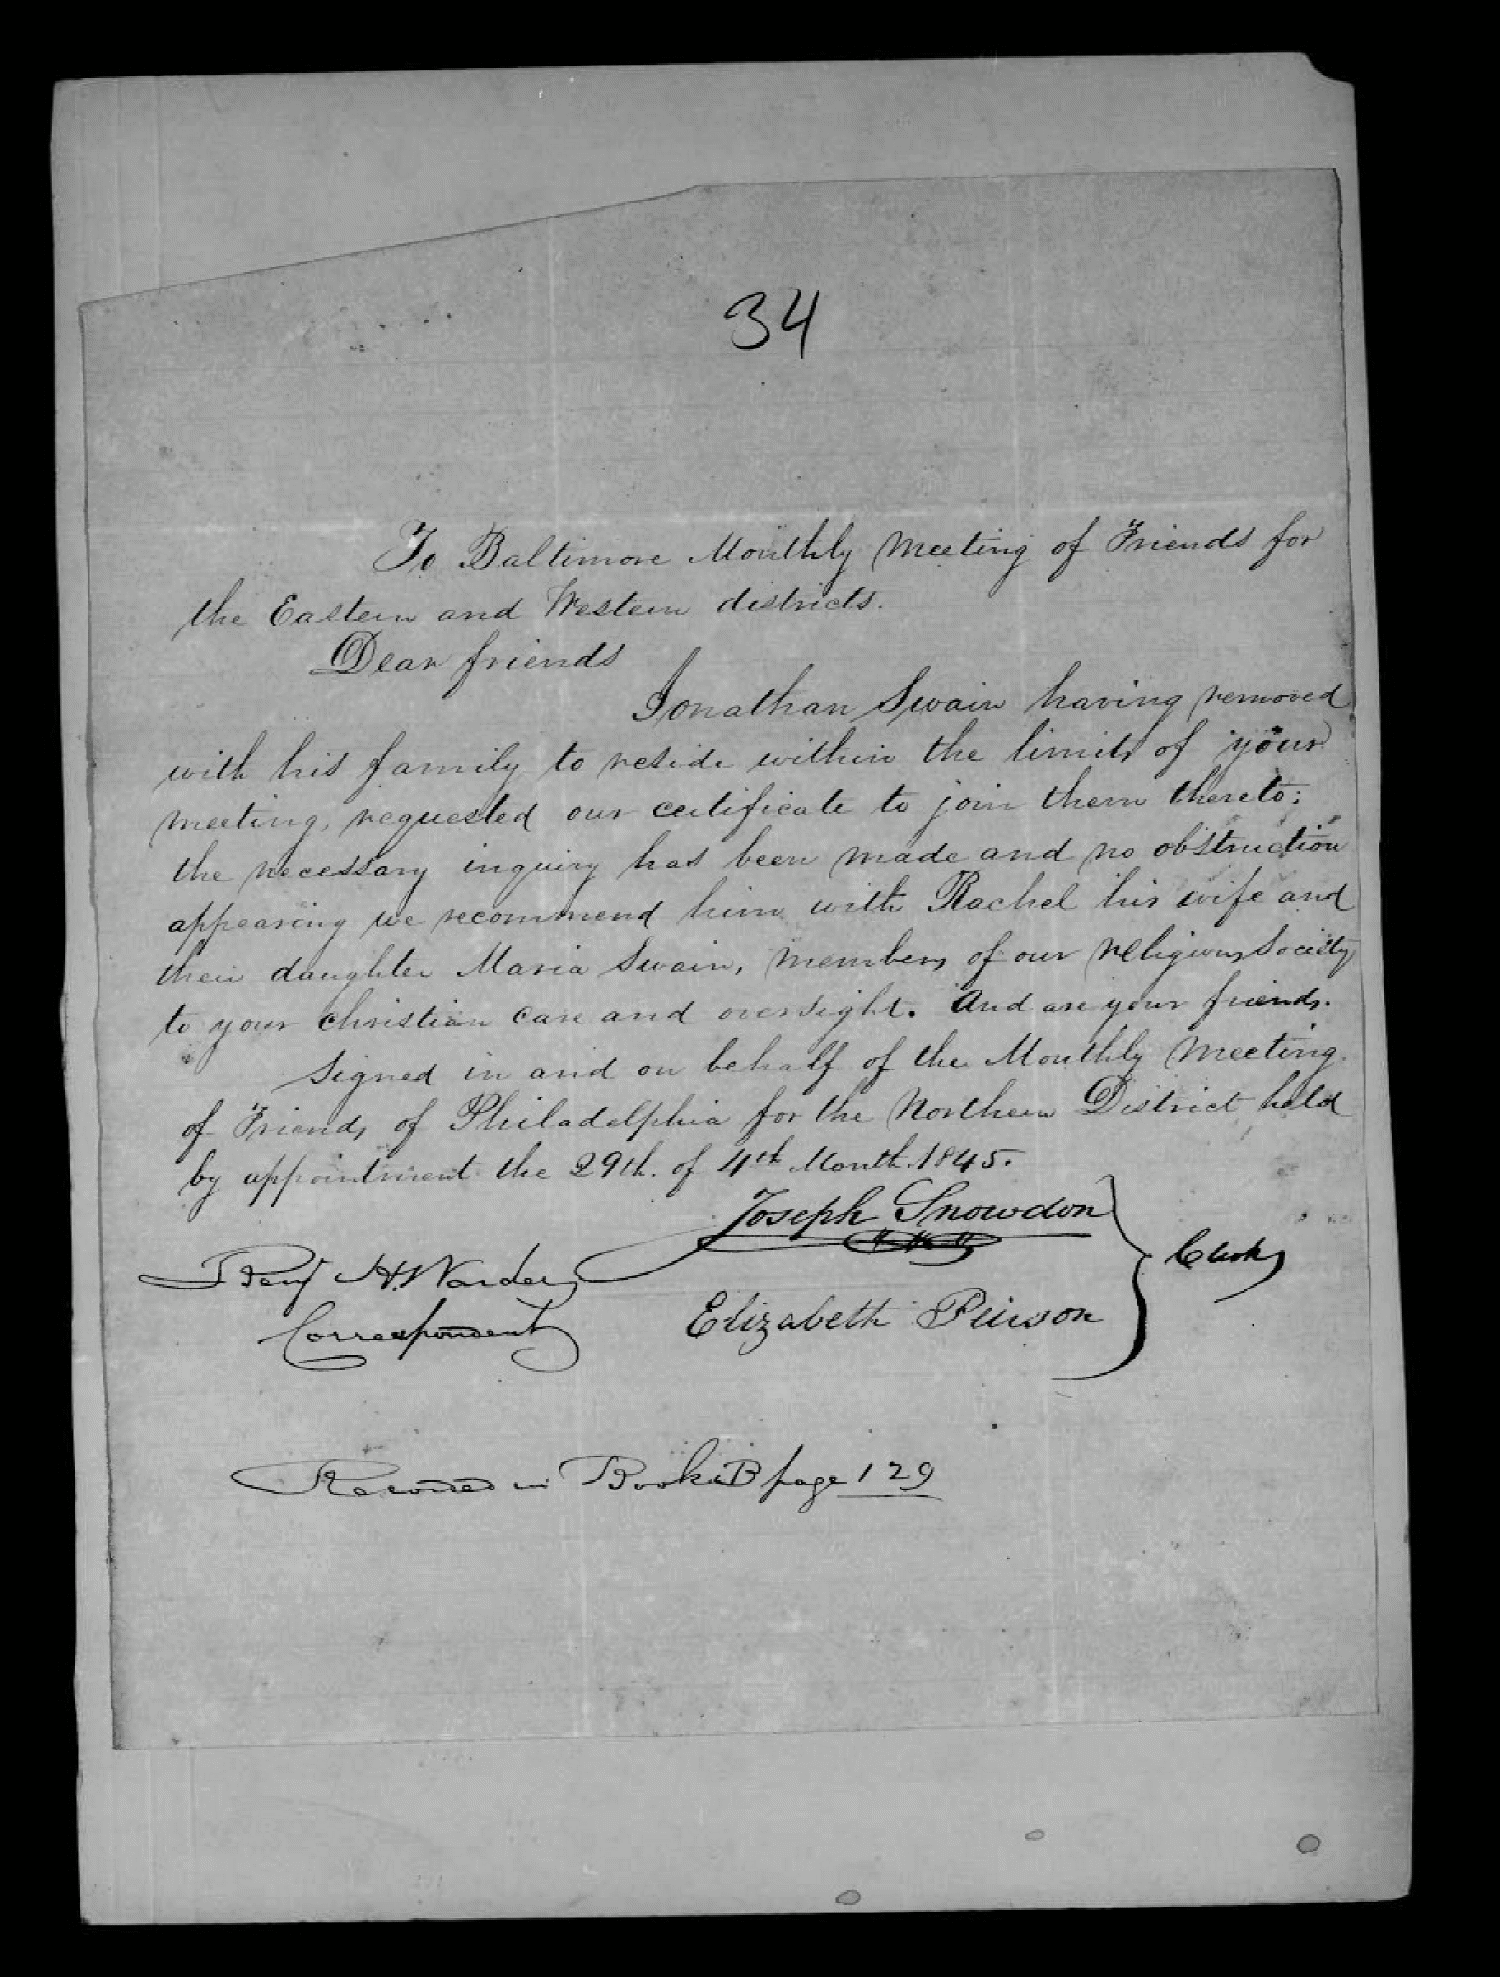 34
To Baltimore Monthly Meeting of Friends for
the Eastern and Western districts.
Dear friends
Jonathan Swain having removed
with his family to reside within the limits of your
meeting, requested our certificate to join them thereto;
the necessary inquiry has been made and no obstruction
appearing we recommend him with Rachel his wife and
their daughter Maria Swain, members of our religious Society,
to your christian care and oversight. And are your friends.
Signed in and on behalf of the Monthly Meeting
of Friends of Philadelphia for the Northern District held
by appointment the 29th. of 4th Month 1845.
Joseph Snowdon
Clerks
Benj H. Warder
Elizabeth Peirson
Correspondent
Recorded in Book B page 129